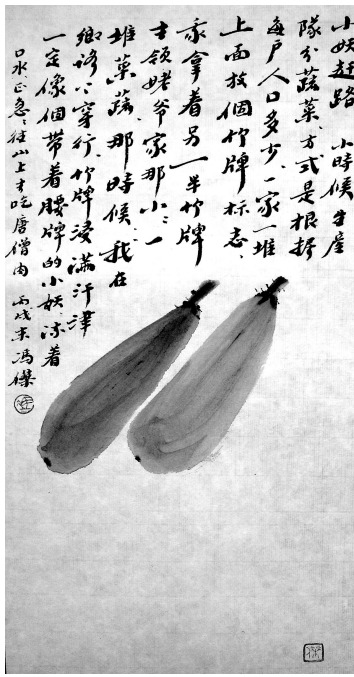 小妖赶路 小時候生産
隊分蔬菜、方式是根据
每户人口多少、一家一堆
上面放個竹牌标志、
我拿着另一半竹牌
去領姥爷家那小小一
堆菜蔬、那時候、我在
鄉路上穿行、竹牌浸满汗津
一定像個帶着腰牌的小妖、流着
口水正急急往山上去吃唐僧肉 丙戌末 馮傑